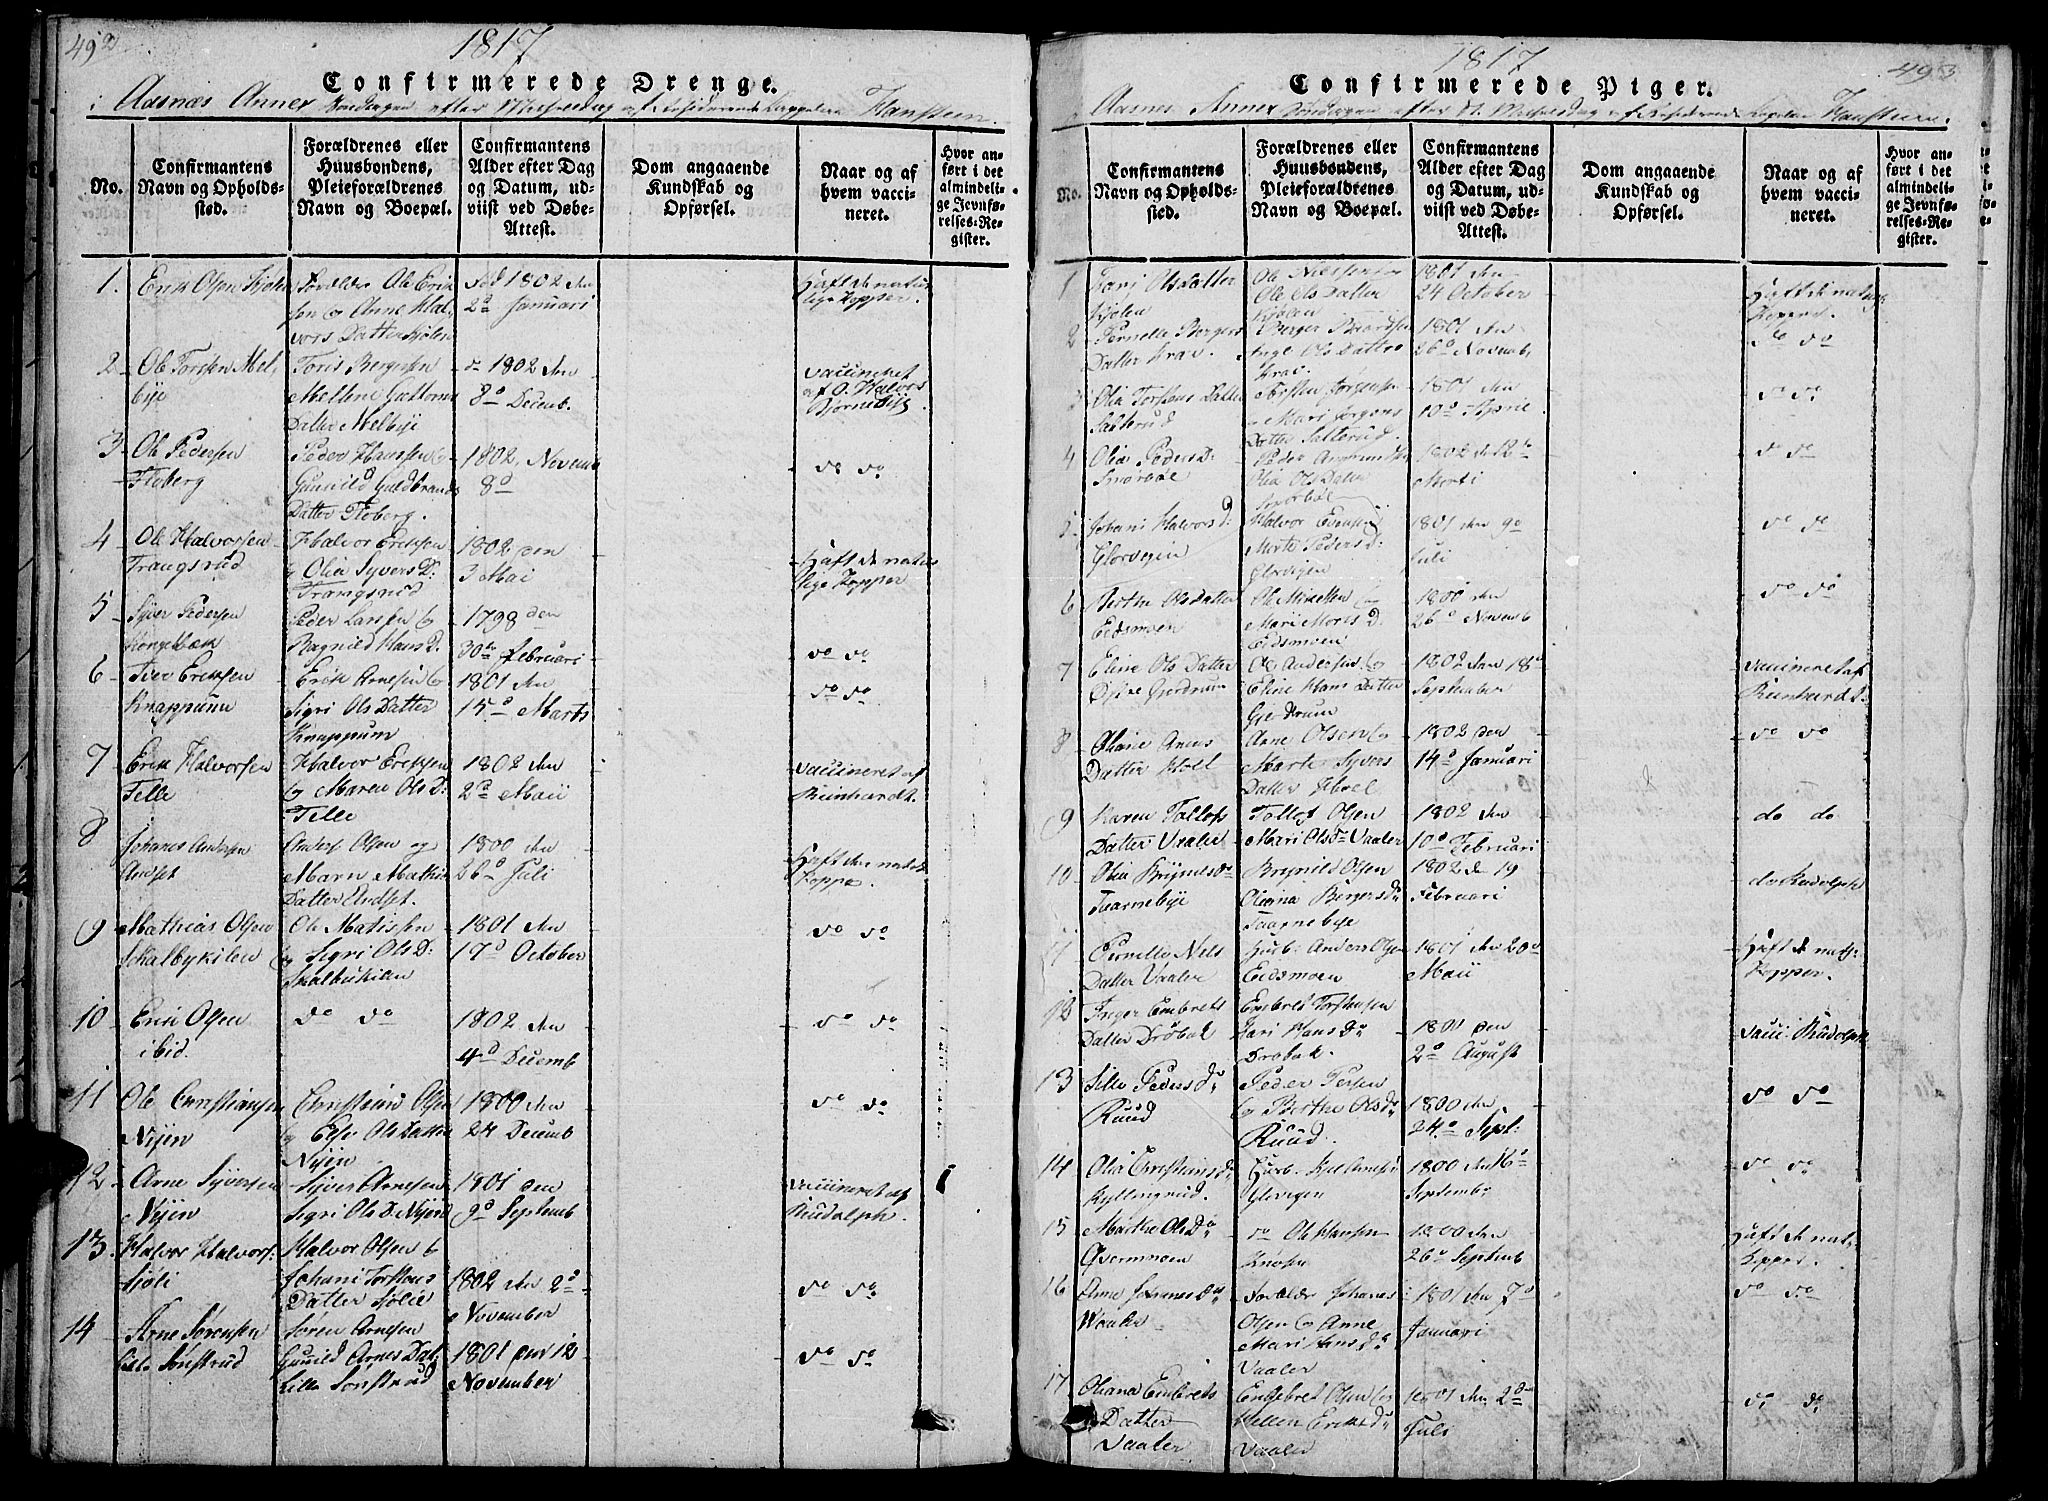 492
1817
Confirmerede Drenge.
i Aasnæs Annex Søndagen efter Michelsdag af residerende Cappelan Hansteen.
No.
Confirmantens Navn og Opholds-sted.
Forældrenes eller Huusbondens, Pleieforældrenes Navn og Boepæl.
Confirmantens Alder efter Dag og Datum, ud-viist ved Døbe-Attest.
Dom angaaende Kundskab og Opførsel.
Naar og af hvem vacci-neret.
Hvor an-ført i det almindeli-ge Jevnfø-relses-Re-gister.
1. Erik Olsen Kjølen
Forældre Ole Erik
sen og Anne Hal
vors Datter Kjølen
Fød 1802 den
2d Januari
Haft de natur
lige Kopper.
2 Ole Torsen Mel
bye
Toris Bergersen
Mellene Guttorms
Datter Melbye
do 1802 den
8d Decemb.
vaccineret
af O. Halvors
Bjørneby
3 Ole Pedersen
Floberg
Peder Hanssen og
Gunild Guldbrands
Datter Floberg.
1802, Novemb
8d
do do
4 Ole Halvorsen
Trangsrud
Halvor Eriksen
og Olia Syvers D:
Trangsrud
1802 den
3 Mai
Haft de natur
lige Kopper
5 Syver Pedersen
Kongelbæk
Peder Larssen og
Ragnild Hans D.
1798 den
30te Februari
do do
6 Erichsen
Knappum
Erik Arnesen og
Sigri Ols Datter
Knappum
1801 den
15d Marts
do do
7 Erik Halvorsen
Telle
Halvor Eriksen
og Maren Ols D:
Telle
1802 den
2d Maii
Vaccineret af
Reinhardt.
8 Johanes Andersen
Andset
Anders Olsen og
Maren Mathis
Datter Andset.
1800 den
26d Juli
Haft den natur
Koppe.
9 Mathias Olsen
Skalbykilen
Ole Matissen
og Sigri Ols D:
Skalbukilen
1801 den
17d October
do do
10 Erik Olsen
ibid.
do do
1802 den
4d Decemb
do do
11 Ole Christiansen
Nyen
Christian Olsen
og Else Ols Datter
Nyen
1800 den
24 Decemb
do do
12 Arne Syversen
Nyen
Syver Arnesen
Sigri Ols D. Nyen
1801 den
9d Septemb
Vaccineret af
Rudolph.
13. Halvor Halvors:
Sjøli
Halvor Olsen &
Johani Torstens
Datter Sjølie
1802 den 2d
November
do do
14 Arne Sørensen
Lille Sønstrud
Søren Arnesen
Gunild Arnes Dat
Lille Sønstrud
1801 den 12
November
do do
493
1817
Confirmerede Piger.
Aasnes Annex Søndagen efter St. Michelsdag af residerende Capelan Hansteen.
No.
Confirmantens Navn og Opholds-sted.
Forældrenes eller Huusbondens, Pleieforældrenes Navn og Boepæl.
Confirmantens Alder efter Dag og Datum, ud-viist ved Døbe-Attest.
Dom angaaende Kundskab og Opførsel.
Naar og af hvem vacci-neret.
Hvor an-ført i det almindeli-ge Jevnfø-relses-Re-gister.
1 Kari Olsdatter
Kjølen
Ole Nielssen
Ols Datter
Kjølen
1801 den
24 October
Haft de naturl
Kopper.
2 Pernelle Bergers
Datter
Berger
Ols Datter
1801 den
26d Novemb.
do do
3 Olia Torstens Datter
Salterud
Torsten Jørgensen
Mari Jørgens
Datter Salterud.
1801 den
10d Aprie
do do
4 Olia Peders D:
Snørbøl
Peder Amundsen
Olia Ols Datter
Snørbøl
1802 den 12te
Marti
do do
5 Johani Halvors D:
Glorvigin
Halvor
Marte Peders D:
Glorvigen
1801 den 9d
Juli
do do
6 Berthe Olsdatter
Eidsmoen
Ole
Mari D.
Eidsmoen
1800 den
26d Novemb
do do
7 Eline Ols Datter
Østre Gjerdrum
Ole Andersen og
Eline Hans Datter
Gjerdrum
1802 den 18d
September
Vaccineret af
Reinhardt
8 Oliane Arnes
Datter Hoel
Arne Olsen og
Marte Syvers
Datter Hoel
1802 den
14d Januari
do do
9 Karen Tollofs
Datter Vaaler
Tollof Olsen
Mari Olsdr Vaaler
1802 den
10d Februari
do do
10 Olia Brynilsdr
Taarnebye
Brynild Olsen
Oleana Bergersdr
Taarnebye
1802 d 19
Februari
do Rudolph
11 Pernelle Nels
Datter Vaaler
Husb. Anders Olsen
Eidsmoen
1801 den 20d
Maii
Haft de natl:
Kopper.
12 Inger Embrets
Datter Drøbak
Embret Torstensen
Kari Hans Dr
Drøbak.
1801 den
2d August
Vacci: Rudolph
13 Peders Dr
Ruud
Peder Persen
og Berthe Olsdr
Ruud.
1800 den
24d Sept:
do do
14 Olia Christians Dr
Kyllingrud.
Husb.
Glorvigen
1800 den 16d
Septembr
do do
15 Marthe Ols Dr
Overmoen
do Ole Hansen
1800 den
26d Septemb
Haft de nat.
Kopper.
16 Anne Johannes Dr
Waaler
Forældre Johanes
Olsen og Anne
Mari Hans dr
Vaaler
1801 den 7d
Januari
do do
17 Oliana Embrets
Datter
Vaaler
Engebret Olsen og
Hellen Eriks Dr
Vaaler
1801 den 2d
Juli
do do